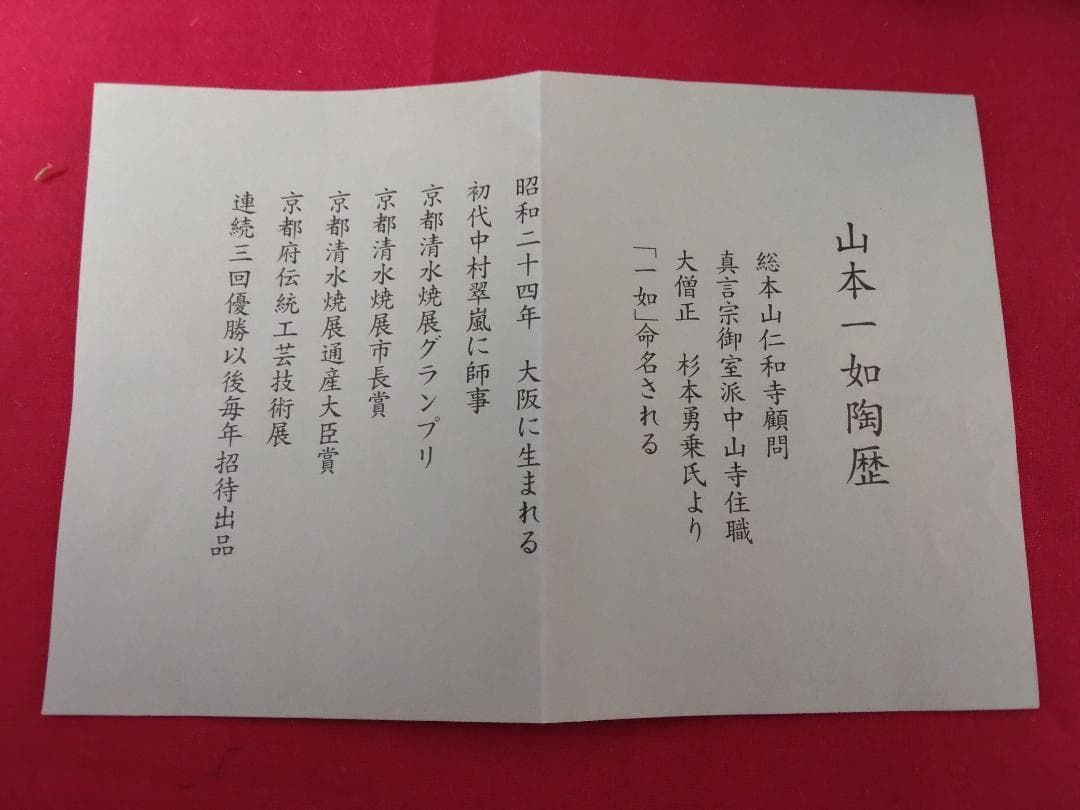 山本一如陶歴
総本山仁和寺顧問
真言宗御室派中山寺住職
大僧正　杉本勇乗氏より
「一如」命名される
昭和二十四年　大阪に生まれる
初代中村翠嵐に師事
京都清水焼展グランプリ
京都清水焼展市長賞
京都清水焼展通産大臣賞
京都府伝統工芸技術展
連続三回優勝以後毎年招待出品